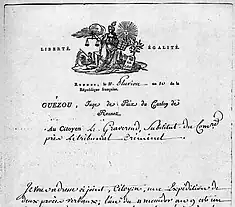 LIBERTÉ. ÉGALITÉ.
Rennes, le 11 Floréal an de la
République française.
GUÉZOU, Juge de Paix du Canton de
Rennes
Au Citoyen Le Graverend, Substitut du
près le tribunal Criminel
Je vous adresse ci joint, Citoyen, une Expédition de
deux procès verbaux, l'un du 11